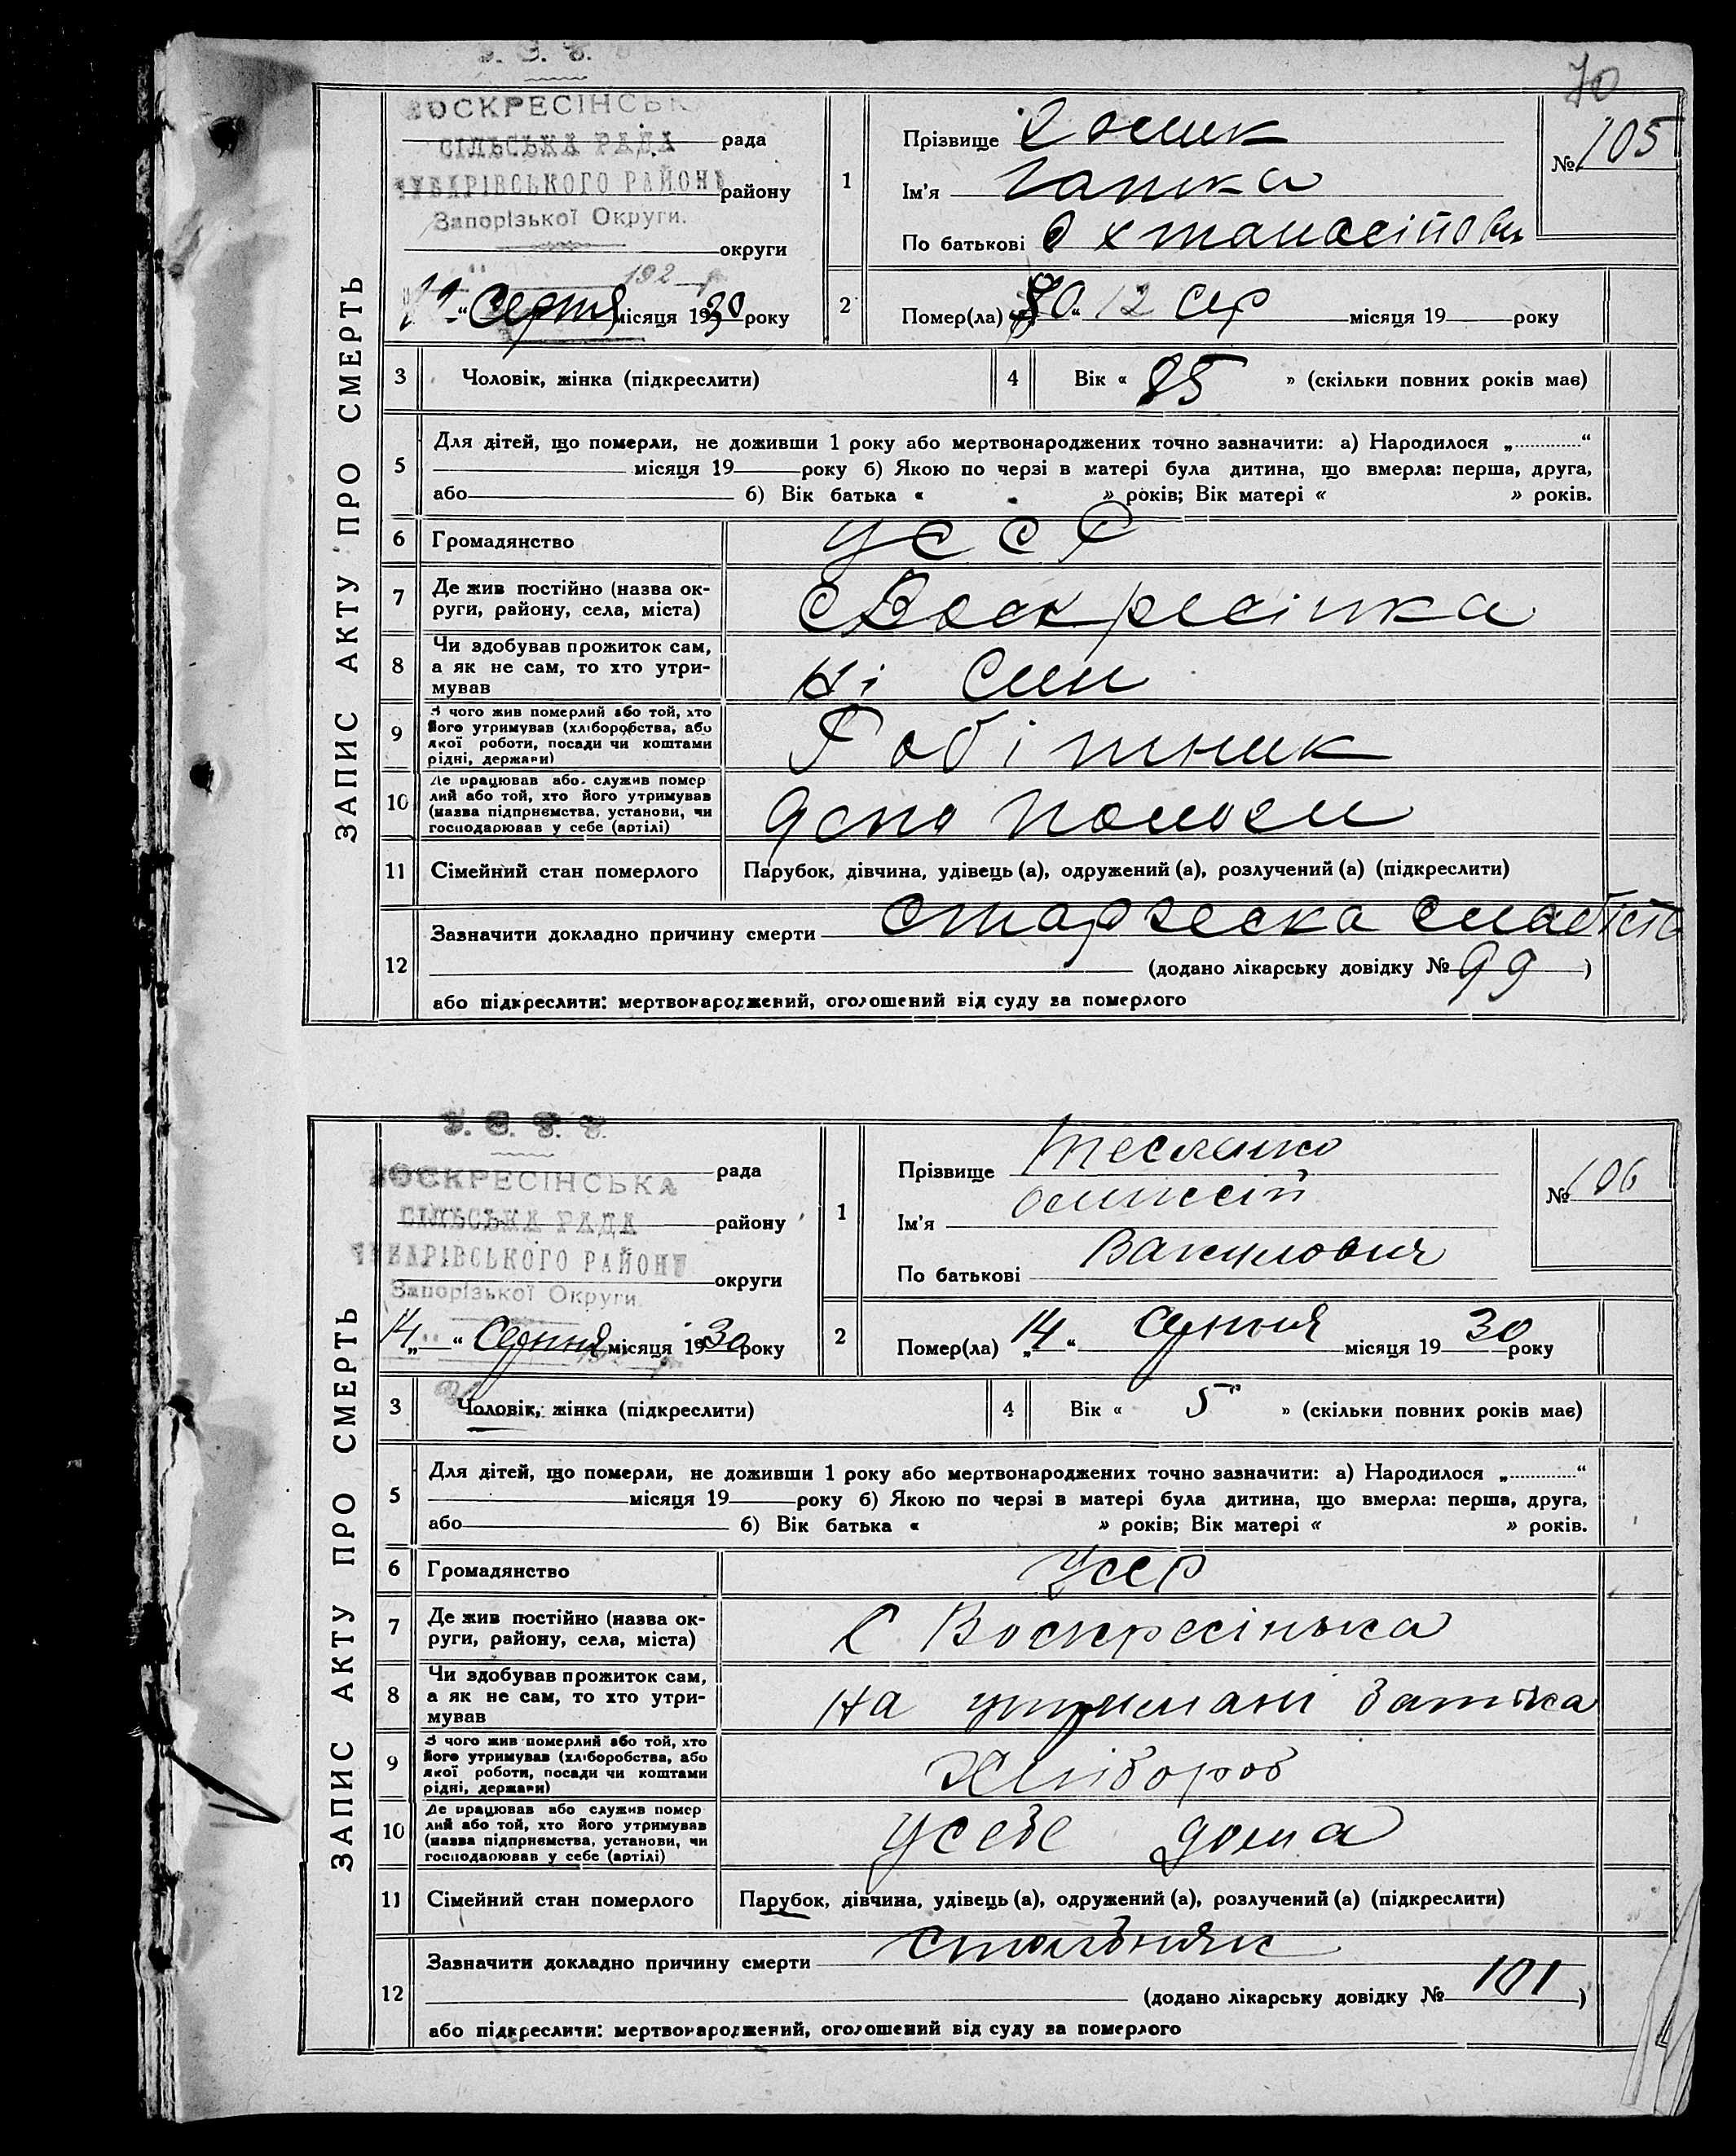 70
У. С. Р. Р.
ВОСКРЕСІНСЬКА
СІЛЬСЬКА РАДА рада
ЧУБАРІВСЬКОГО РАЙОНУ району
Запорізької Округи.
округи
192
Серпня місяця 1930 року
ЗАПИС АКТУ ПРО СМЕРТЬ
1
Прізвище
Ім'я
По батькові
№ 105
2
Помер(ла) 12 Сер місяця 19 року
3 Чоловік, жінка (підкреслити)
4 Вік « 85 » (скільки повних років має)
5 Для дітей, що померли, не доживши 1 року або мертвонароджених точно зазначити: а) Народилося „ “
місяця 19 року б) Якою по черзі в матері була дитина, що вмерла: перша, друга,
або б) Вік батька « » років; Вік матері « » років.
6 Громадянство УССР
7 Де жив постійно (назва ок-
руги, району, села, міста) с Воскресінка
8 Чи здобував прожиток сам,
а як не сам, то хто утри-
мував Ні Син
9 З чого жив померлий або той, хто
його утримував (хліборобства, або
якої роботи, посади чи коштами
рідні, держави) Робітник
10 Де працював або служив помер
лий або той, хто його утримував
(назва підприємства, установи, чи
господарював у себе (артілі) Депо Пологи
11 Сімейний стан померлого Парубок, дівчина, удівець (а), одружений (а), розлучений (а) (підкреслити)
12 Зазначити докладно причину смерти старческа слабість
(додано лікарську довідку № 99 )
або підкреслити: мертвонароджений, оголошений від суду за померлого
У. С. Р. Р.
рада
ВОСКРЕСІНСЬКА
СІЛЬСЬКА РАДА району
ЧУБАРІВСЬКОГО РАЙОНУ
округи
Запорізької Округи.
14 „ “ Серпня місяця 1930 року
ЗАПИС АКТУ ПРО СМЕРТЬ
1
Прізвище Тесленко
Ім'я Олексій
По батькові Вакулович
№ 106
2
Помер(ла) „14“ Серпня місяця 19 30 року
3 Чоловік, жінка (підкреслити)
4 Вік « 5 » (скільки повних років має)
5 Для дітей, що померли, не доживши 1 року або мертвонароджених точно зазначити: а) Народилося „ “
місяця 19 року б) Якою по черзі в матері була дитина, що вмерла: перша, друга,
або б) Вік батька « » років; Вік матері « » років.
6 Громадянство Усср
7 Де жив постійно (назва ок-
руги, району, села, міста) С Воскресінька
8 Чи здобував прожиток сам,
а як не сам, то хто утри-
мував На утримані батька
9 З чого жив померлий або той, хто
його утримував (хліборобства, або
якої роботи, посади чи коштами
рідні, держави) Хлібороб
10 Де працював або служив помер
лий або той, хто його утримував
(назва підприємства, установи, чи
господарював у себе (артілі) Усебе дома
11 Сімейний стан померлого Парубок, дівчина, удівець (а), одружений (а), розлучений (а) (підкреслити)
12 Зазначити докладно причину смерти стольбняк
(додано лікарську довідку № 101 )
або підкреслити: мертвонароджений, оголошений від суду за померлого